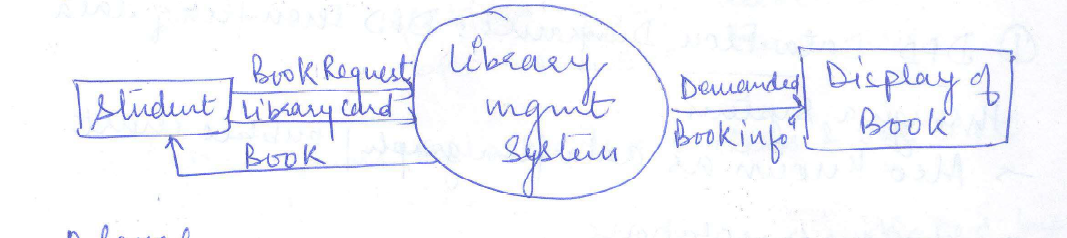 Book Request
Student
Library Card
Book
Library
mgmt
System
Demanded
Book info
Display of
Book